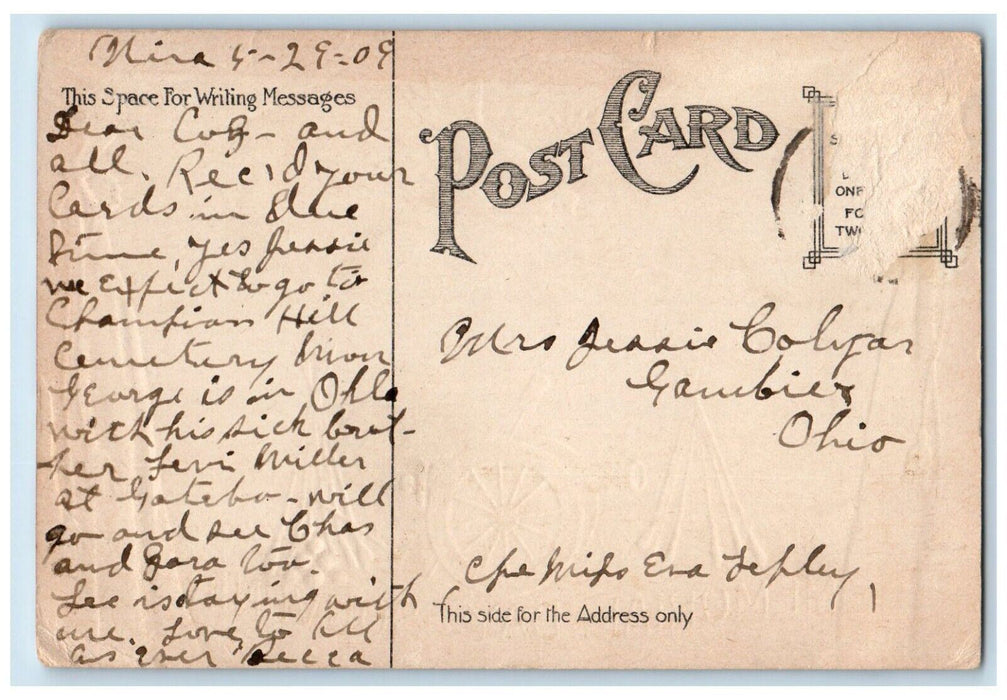 Nira 5-29-09
This Space For Writing Messages
Dear Cob - and
all. Rec'd your
Cards in Due
Time, yes Jessie
we Expect to go to
Champion Hill
Cemetery Mon
George is in Okla
with his sick brot-
her Levi Miller
at Gotebo - will
go and see Chas
and Zora too.
Lee is staying with
me. Love to All
as ever Becca
POST CARD
ONE
FO
TWO
Mrs Jessie Colyar
Gambier
Ohio
c/o Miss Eva Lepley,
This side for the Address only